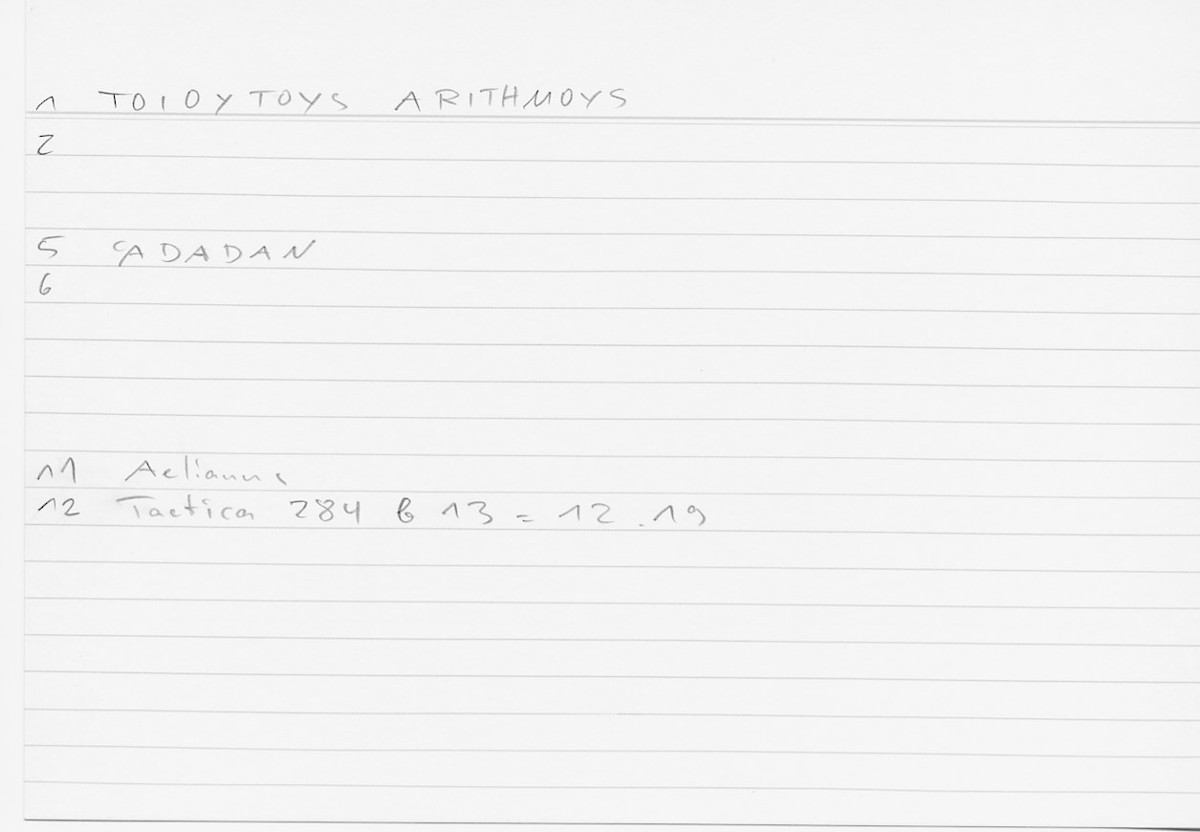 1 TOIOYTOYS ARITHMOYS
2
5 ʿADADAN
6
11 Aelianus
12 Tactica 284 b 13 = 12.19